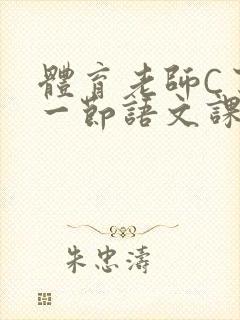 體育老師C
一節語文課
朱忠濤